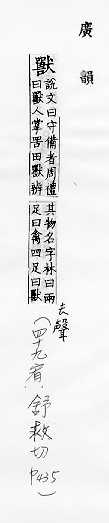 廣韻
獸
說文曰守備者周禮
曰獸人掌罟田獸辨
其物名字林曰兩
足曰禽四足曰獸
去聲
(四十九宥 舒救切
P435)